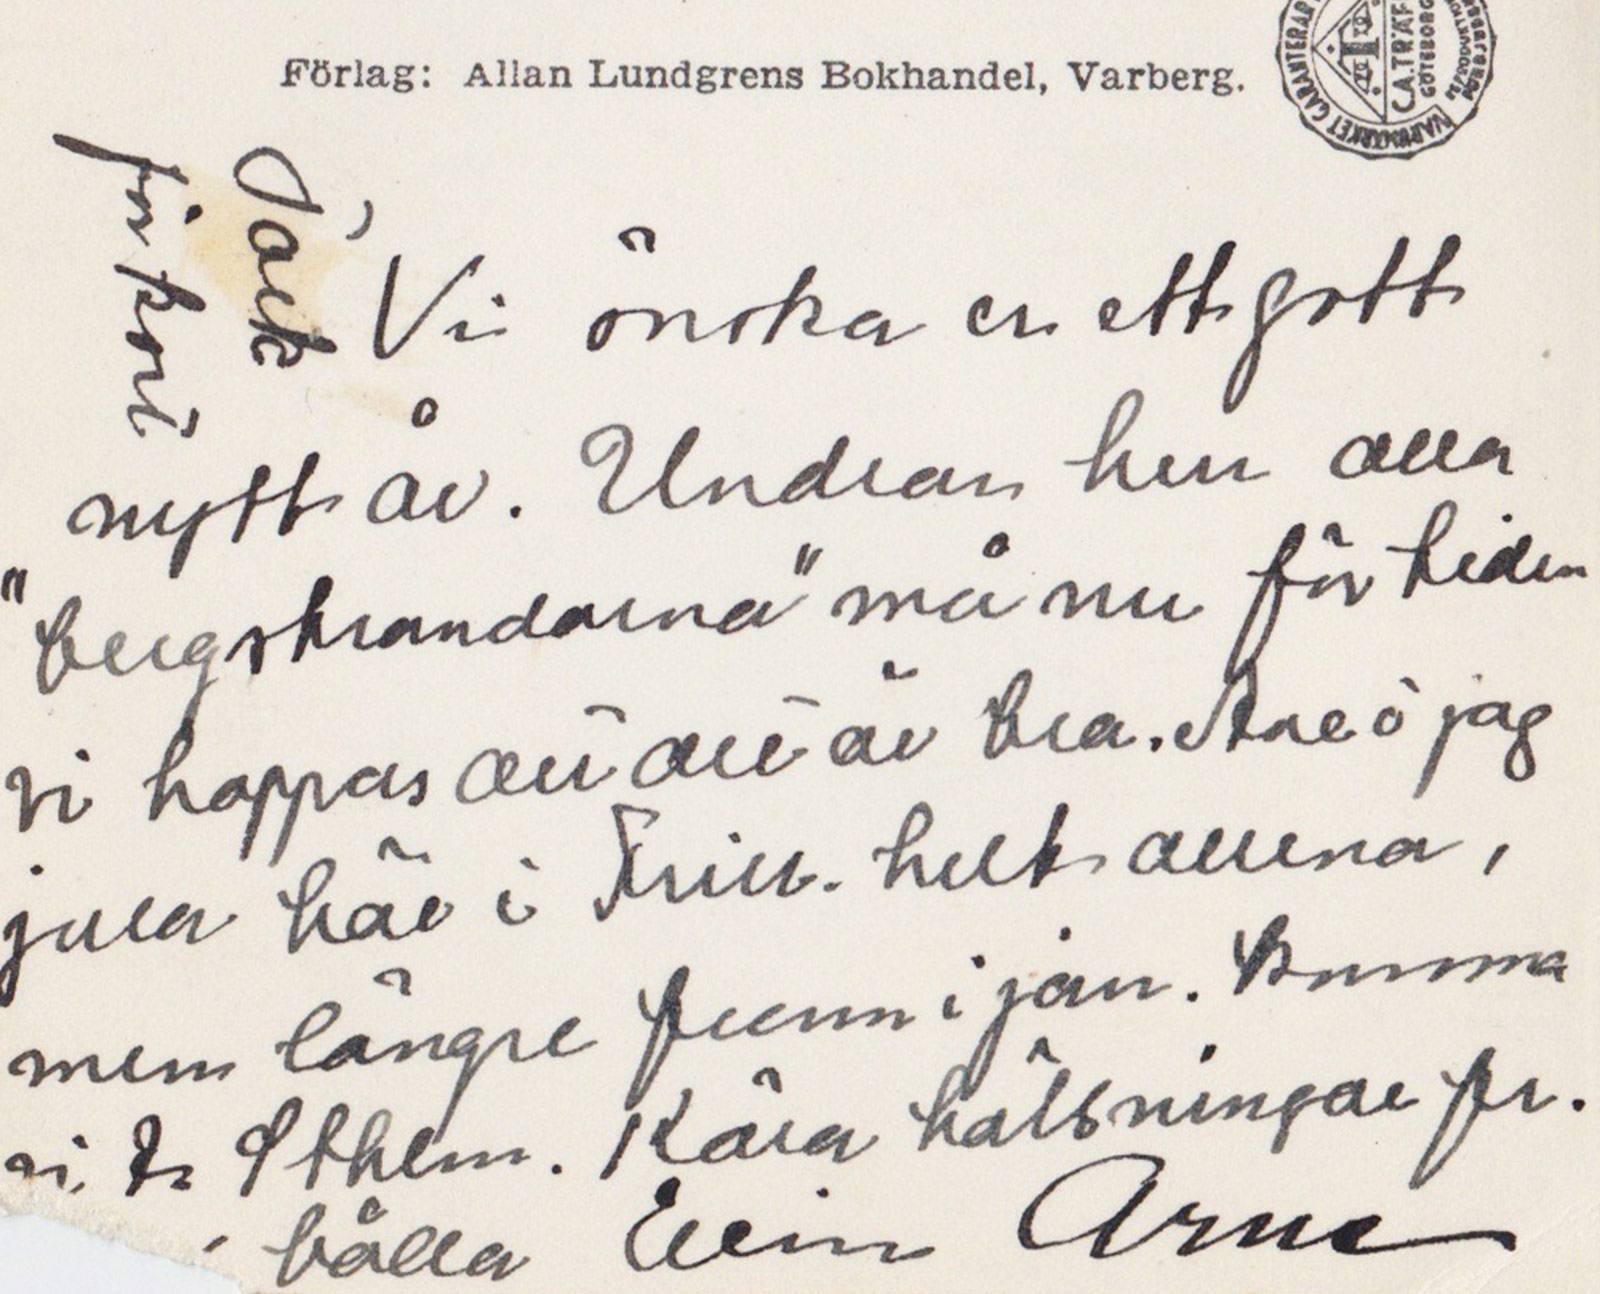 Förlag: Allan Lundgrens Bokhandel, Varberg.
VARUMÄRKET GARANTERAR
C.A. TRÄFF
GÖTEBORG
Tack
för kort
Vi önska er ett gott
nytt år. Undran hur alla
"bergstrandarna" må nu för tiden
vi hoppas allt allt är bra. Arne ö jag
jular här i Trill. helt allena,
men längre fram i jan. komma
vi t. Sthlm. Kära hälsningar fr.
båda Elin Arne